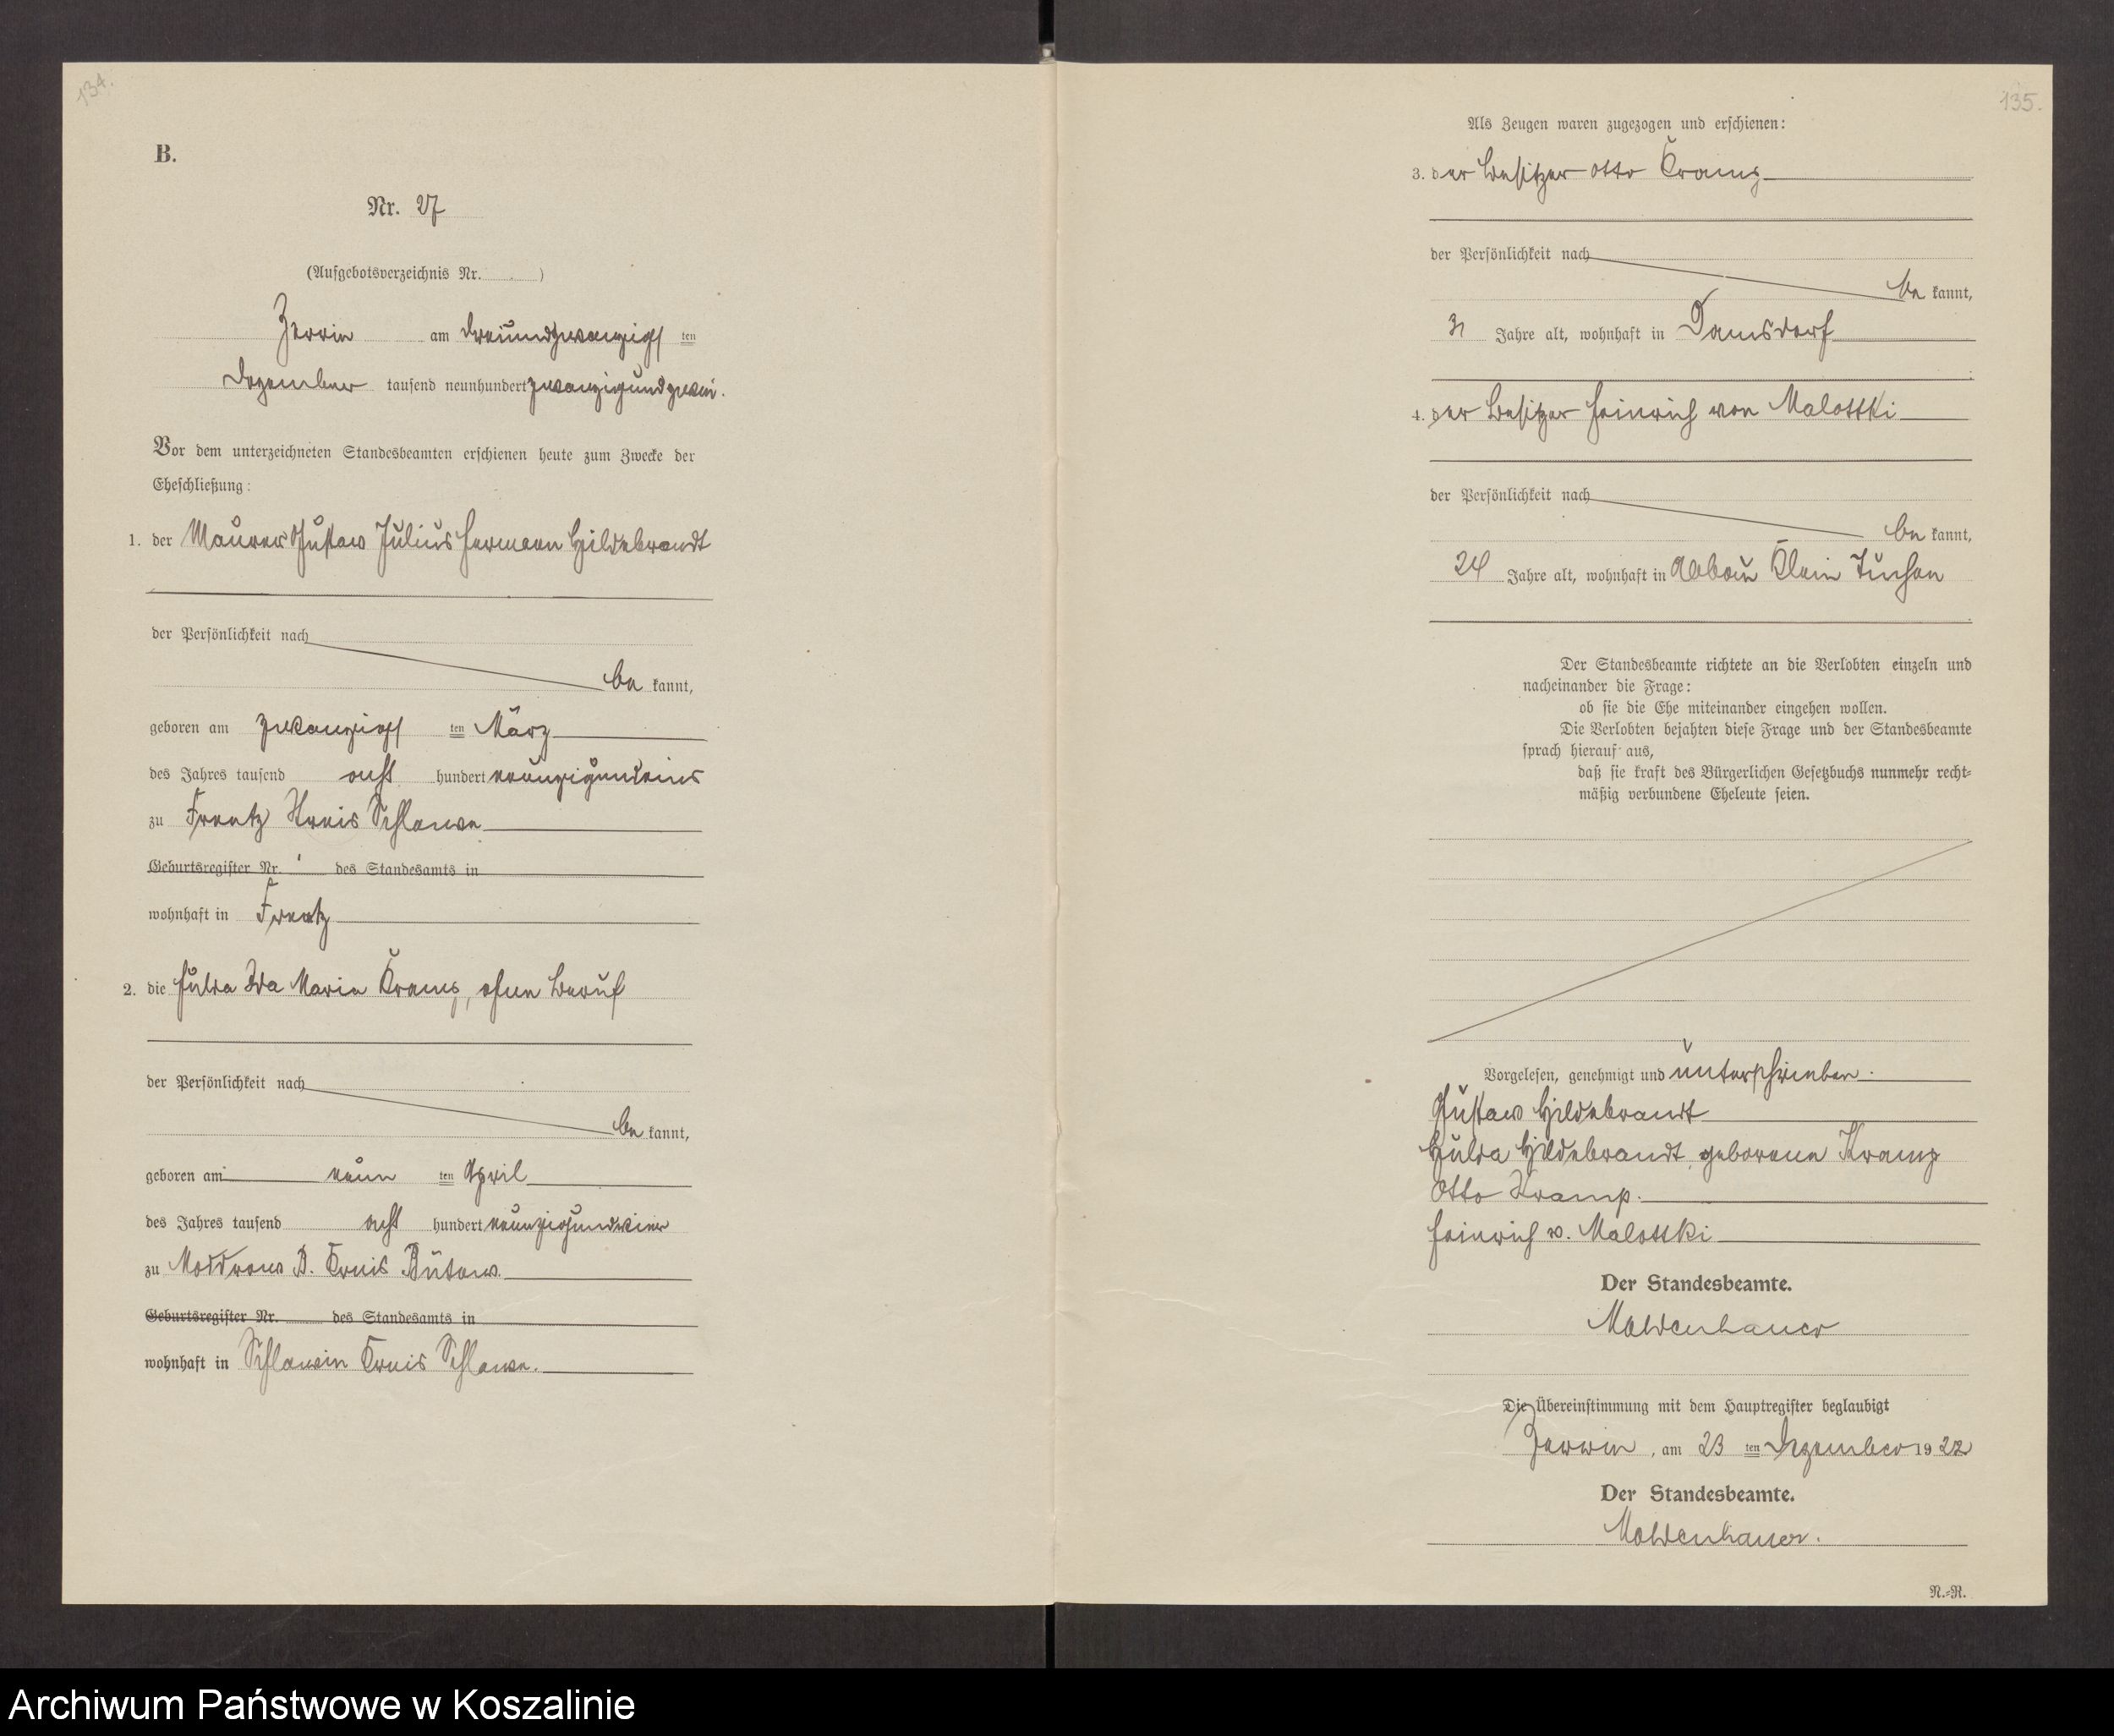 134.
B.
Nr. 27
(Aufgebotsverzeichnis Nr. )
Zerrin am dreiundzwanzigsten
Dezember tausend neunhundert zwanzigundzwei.
Vor dem unterzeichneten Standesbeamten erschienen heute zum Zwecke der
Eheschließung:
1. der Maurer Gustav Julius Hermann Hildebrandt
der Persönlichkeit nach
be kannt,
geboren am zwanzigsten März
des Jahres tausend acht hundert neunzigundeins
zu Freetz Kreis Schlawe
Geburtsregister Nr. des Standesamts in
wohnhaft in Freetz
2. die Hulda Ida Marie Kramp, ohne Beruf
der Persönlichkeit nach
be kannt,
geboren am neun ten April
des Jahres tausend acht hundert neunzigundvier
zu Moddrow B. Kreis Bütow.
Geburtsregister Nr. des Standesamts in
wohnhaft in Schlawin Kreis Schlawe.
135.
Als Zeugen waren zugezogen und erschienen:
3. der Besitzer Otto Kramp
der Persönlichkeit nach
be kannt,
31 Jahre alt, wohnhaft in Damsdorf
4. der Besitzer Heinrich von Malottki
der Persönlichkeit nach
be kannt,
24 Jahre alt, wohnhaft in Abbau Klein Tuchen
Der Standesbeamte richtete an die Verlobten einzeln und
nacheinander die Frage:
ob sie die Ehe miteinander eingehen wollen.
Die Verlobten bejahten diese Frage und der Standesbeamte
sprach hierauf aus,
daß sie kraft des Bürgerlichen Gesetzbuchs nunmehr recht-
mäßig verbundene Eheleute seien.
Vorgelesen, genehmigt und unterschrieben.
Gustav Hildebrandt
Hulda Hildebrandt geborene Kramp
Otto Kramp.
Heinrich v. Malottki
Der Standesbeamte.
Moldenhauer
Die Übereinstimmung mit dem Hauptregister beglaubigt
Zerrin, am 23 ten Dezember 1922
Der Standesbeamte.
Moldenhauer.
N.-R.
Archiwum Państwowe w Koszalinie